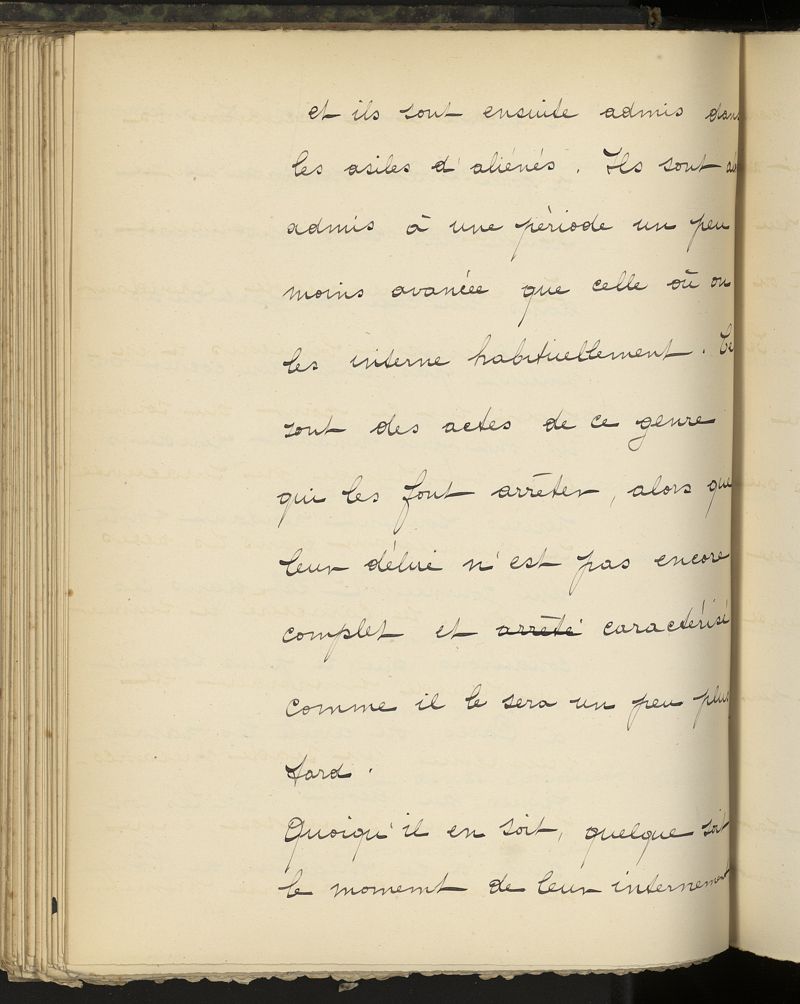 et ils sont ensuite admis dans
les asiles d'aliénés. Ils sont
admis à une période un peu
moins avancée que celle où on
les interne habituellement. Ce
sont des actes de ce genre
qui les font arrêter, alors que
leur délire n'est pas encore
complet et arrêté caractérisé
comme il le sera un peu plus
tard.
Quoiqu'il en soit, quelque soit
le moment de leur internement